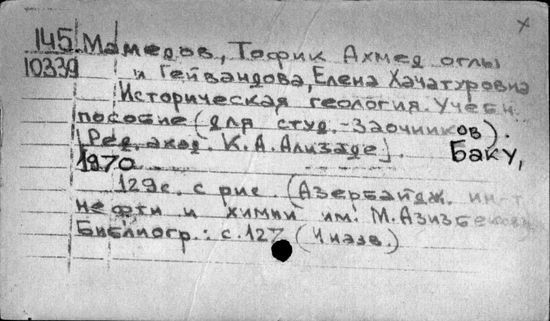 145 Мамедов, Тофик Ахмед оглы
10339 и Гейвандова, Елена Хачатуровна
Историческая геология. Учебн.
пособие (для студ.-заочников).
[Ред. акад. К.А. Ализаде]. Баку,
1970
129с. с рис. (Азербайдж. ин-т
нефти и химии им. М. Азизбекова)
Библиогр.: с. 127 (4 назв.)